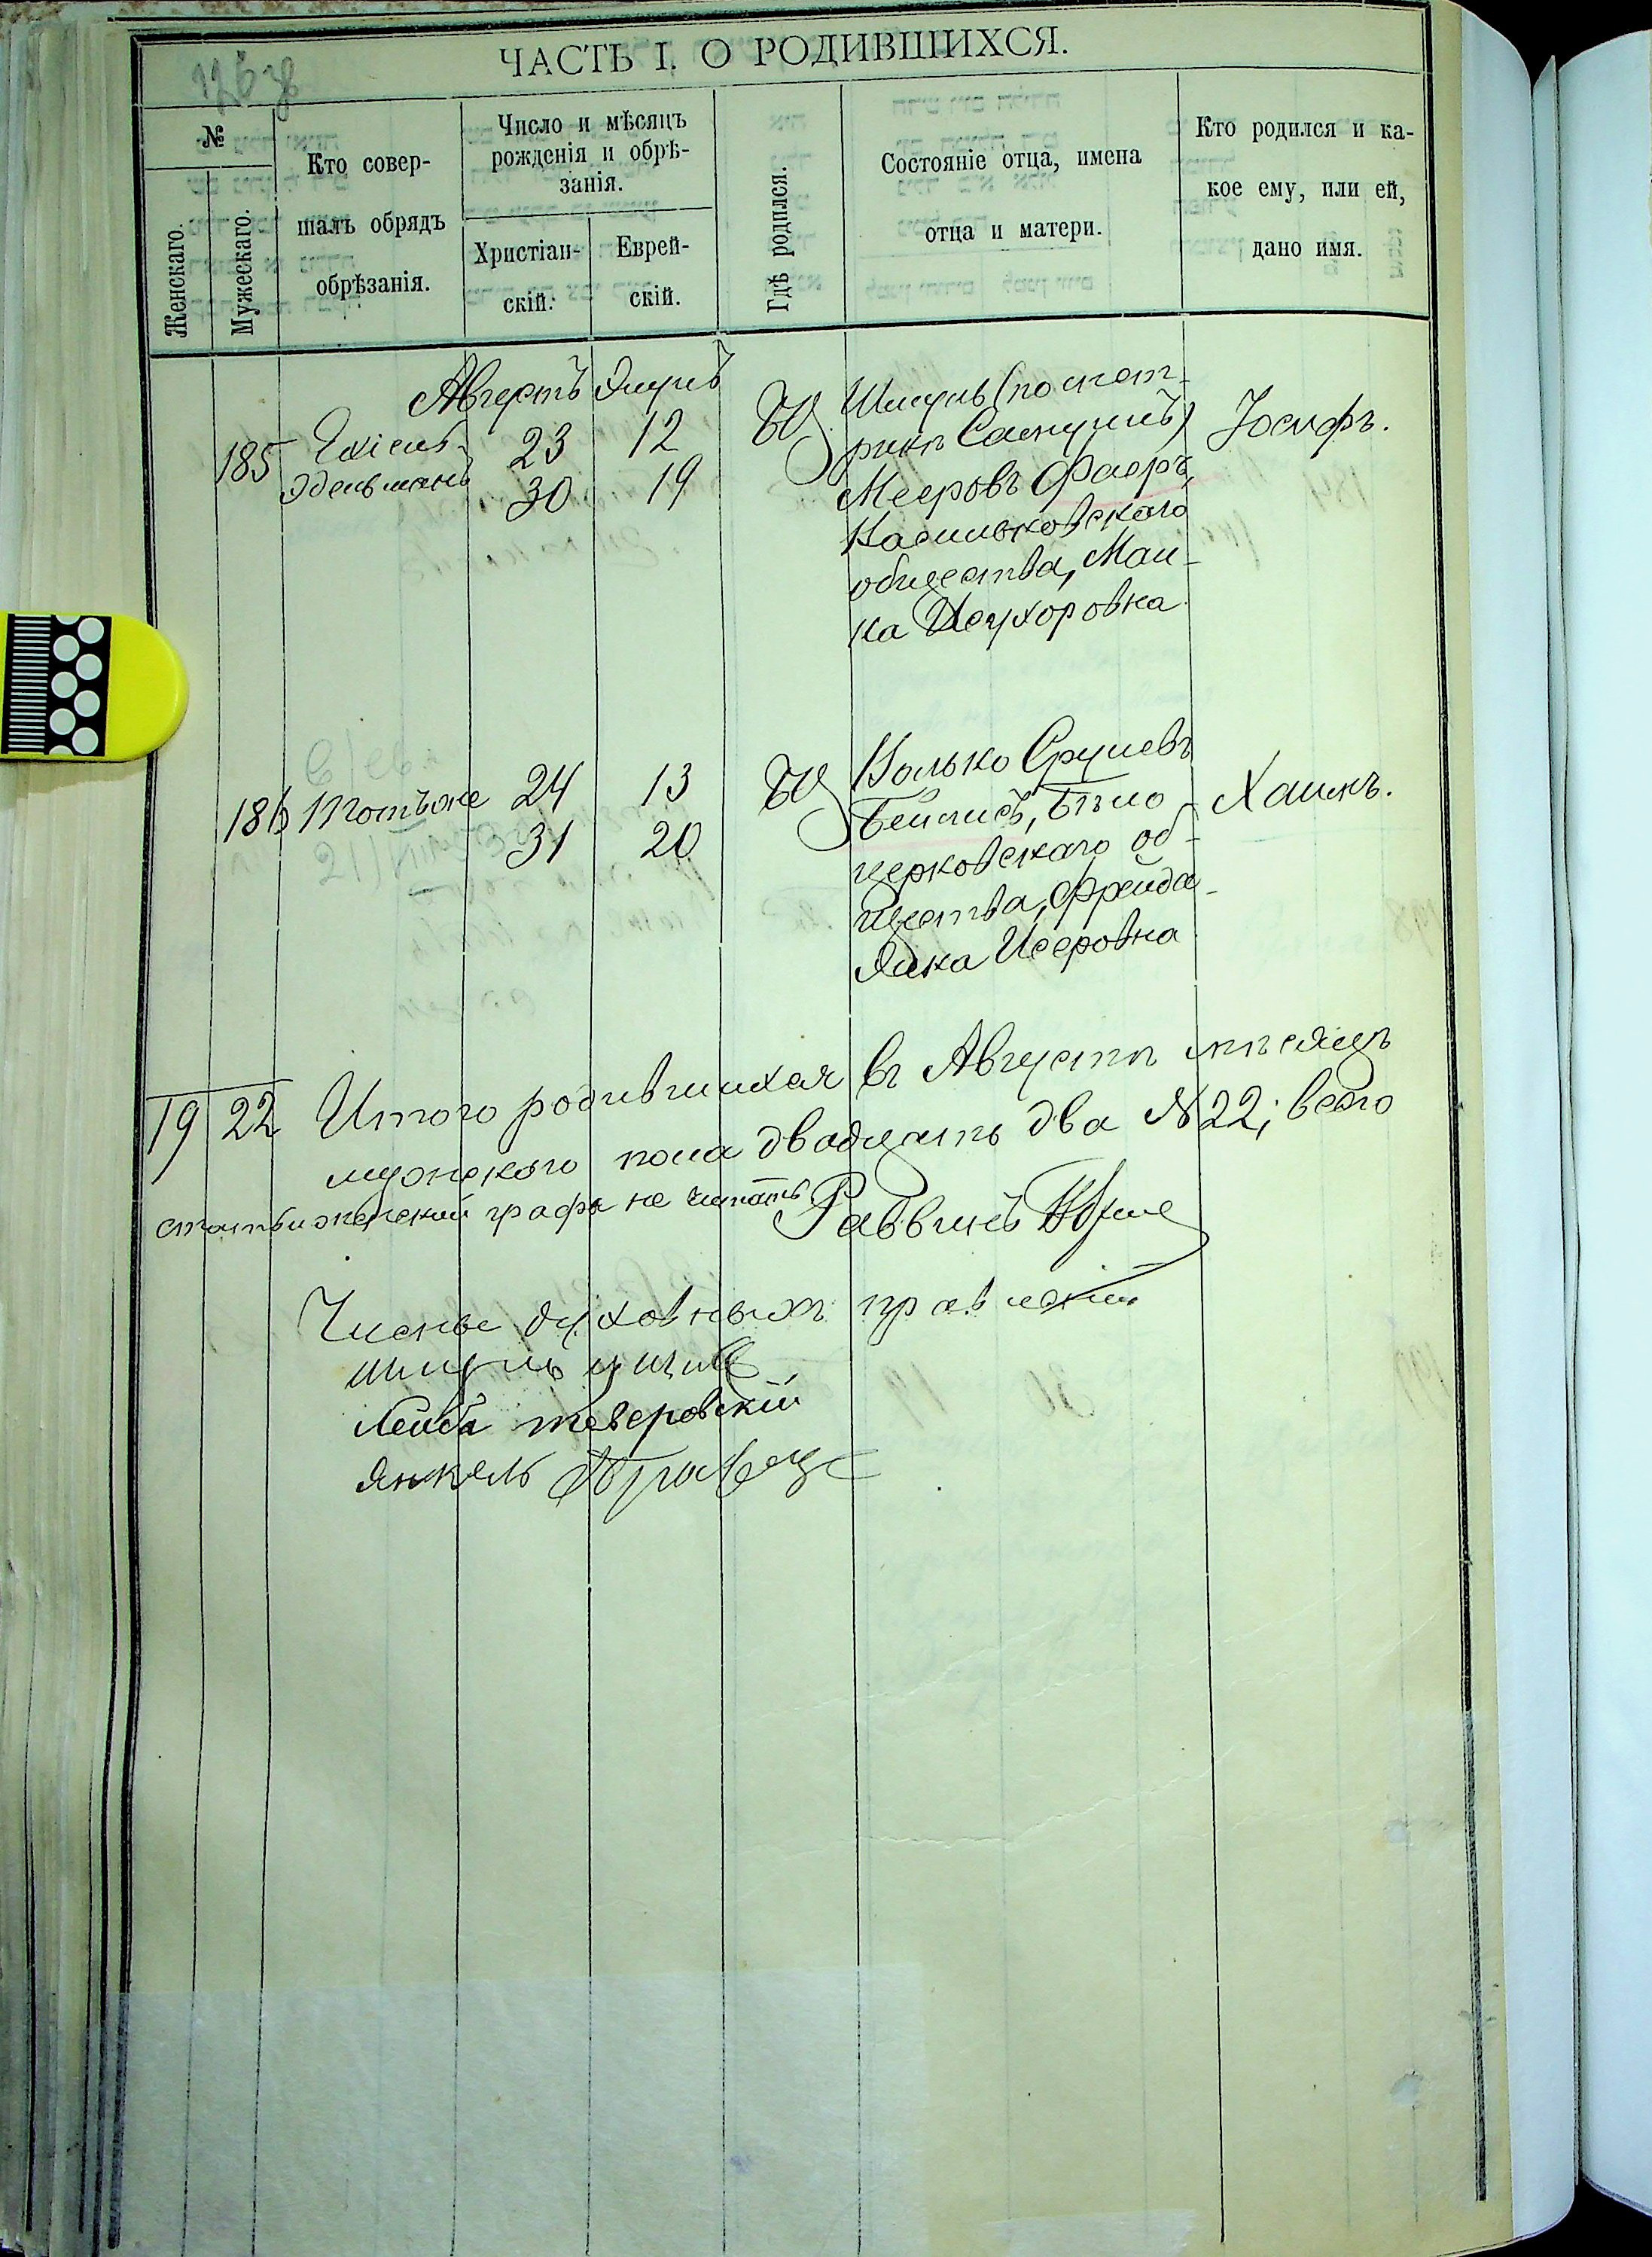 ЧАСТЬ I. О РОДИВШИХСЯ.
№
Женскаго.
Мужескаго.
Кто совер-
шалъ обрядъ
обрѣзанія.
Число и мѣсяцъ
рожденія и обрѣ-
занія.
Христіан-
скій.
Еврей-
скій.
Гдѣ родился.
Состояніе отца, имена
отца и матери.
Кто родился и ка-
кое ему, или ей,
дано имя.
Августъ Элулъ
185
Эдельманъ
23
30
12
19
Шмуль (по мет-
рикѣ Самуилъ)
Мееровъ Фаеръ,
Васильковскаго
общества, Мал-
ка Исухоровна
Іосифъ.
186 Тотъ же
24
31
13
20
Волько Срулевъ
Бейлисъ, Бѣло-
церковскаго об-
щества, Фрейда
Янка Исеровна
Хаимъ.
19 22 Итого родившихся въ Августѣ мѣсяцѣ
мужского пола двадцать два № 22; всего
женской графѣ не читать. Раввинъ
Члены духовныхъ правленій
Шмуль
Лейба тверовскій
Янкель